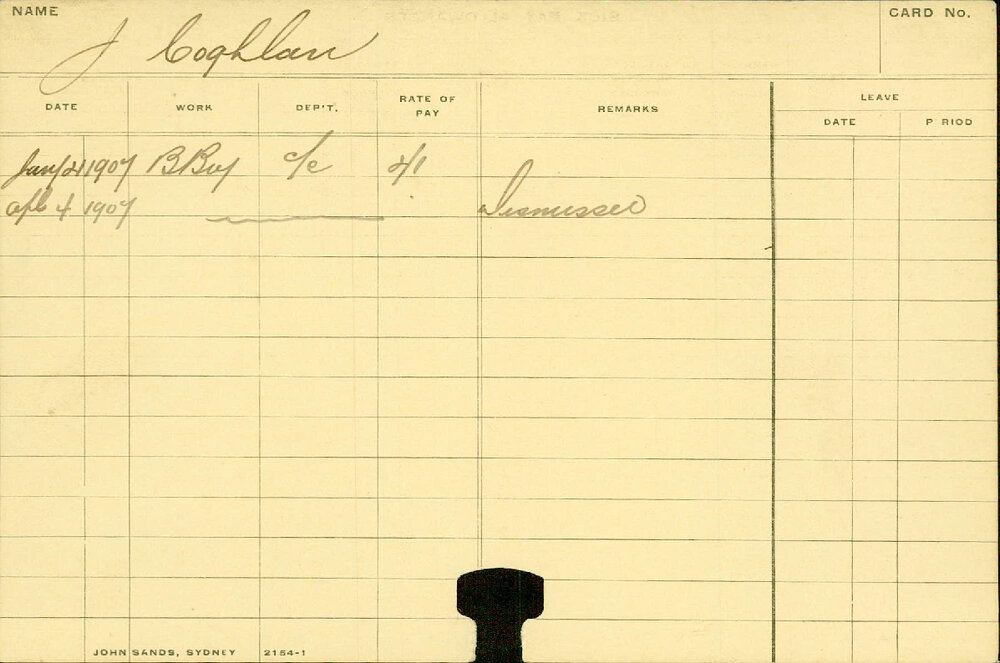 NAME
J Coghlan
CARD No.
DATE WORK DEP'T. RATE OF PAY REMARKS LEAVE
DATE P RIOD
Jany 21 1907 B Boy c/c 2/1
Apl 4 1907 Dismissed
JOHN SANDS, SYDNEY 2154-1